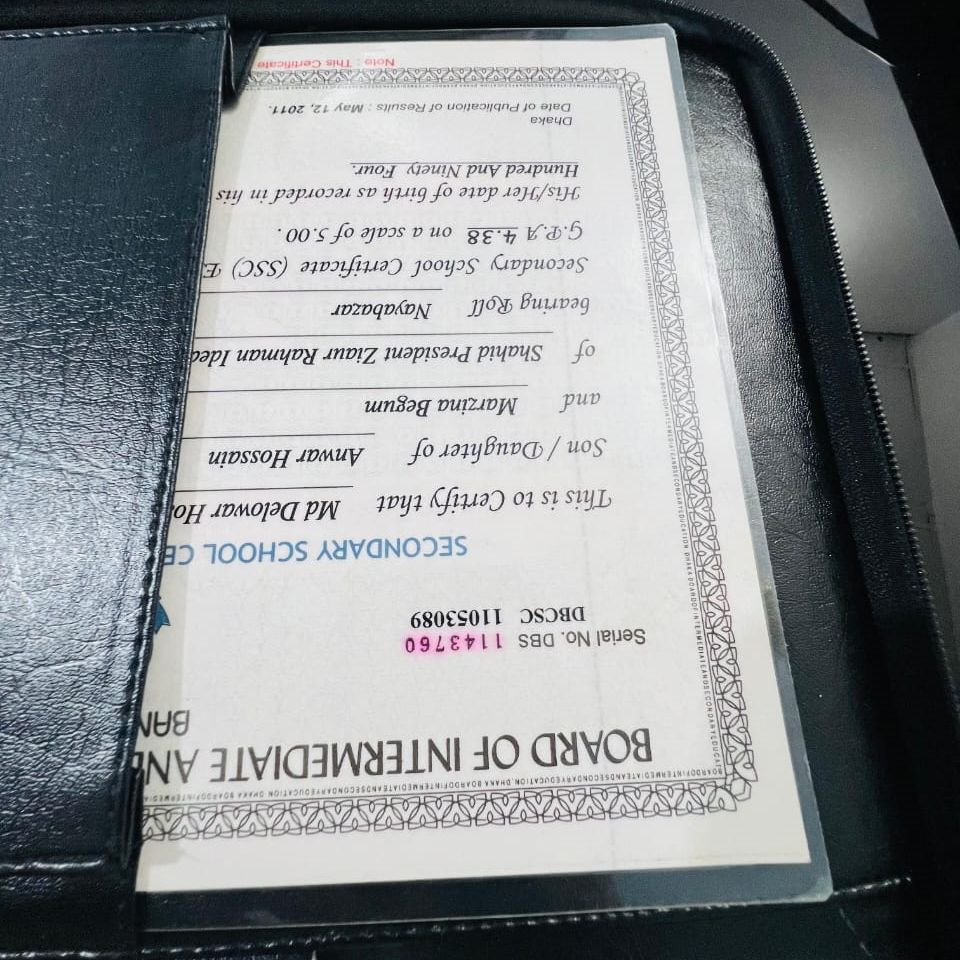 BOARD OF INTERMEDIATE AND
BAN
Serial No. DBS 1143760
DBCSC 11053089
SECONDARY SCHOOL CE
This is to Certify that Md Delowar Ho
Son / Daughter of Anwar Hossain
and Marzina Begum
of Shahid President Ziaur Rahman Idea
bearing Roll Nayabazar
Secondary School Certificate (SSC) E
G.P.A 4.38 on a scale of 5.00 .
His/Her date of birth as recorded in his
Hundred And Ninety Four.
Dhaka
Date of Publication of Results : May 12, 2011.
Note : This Certificate